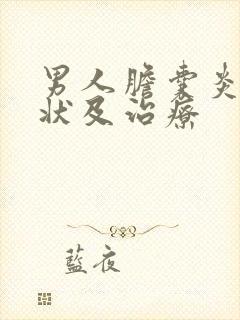 男人膽囊炎
狀及治療
藍夜